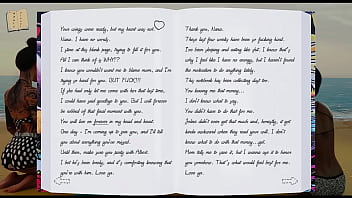 Your wings were ready, but my heart was not.
Nana. I have no words.
I stare at this blank page, trying to fill it for you.
All I can think of is WHY!?
I know you wouldn't want me to blame mom, and I'm
trying so hard for you. BUT FUCK!!!
If she had only let me come with her that last time,
I could have said goodbye to you. But I will forever
be robbed of that final moment with you.
You will live on forever in my head and heart.
One day - I'm coming up to join you, and I'll tell
you about everything you've missed.
Until then, make sure you party with Albert.
I bet he's been lonely, and it's comforting knowing that
you're with him. Love ya.
Thank you, Nana.
These last few weeks have been so fucking hard.
I've been sleeping and eating like shit. I know that's
why I feel like I have no energy, but I haven't found
the motivation to do anything lately.
This notebook has been collecting dust too.
You leaving me that money...
I don't know what to say.
You didn't have to do that for me.
Jodeci didn't even get that much and, honestly, it got
kinda awkward when they read your will. I don't
know what to do with that money...yet.
Mom tells me to save it, but I wanna use it to honor
you somehow. That's what would feel best for me.
Love ya.